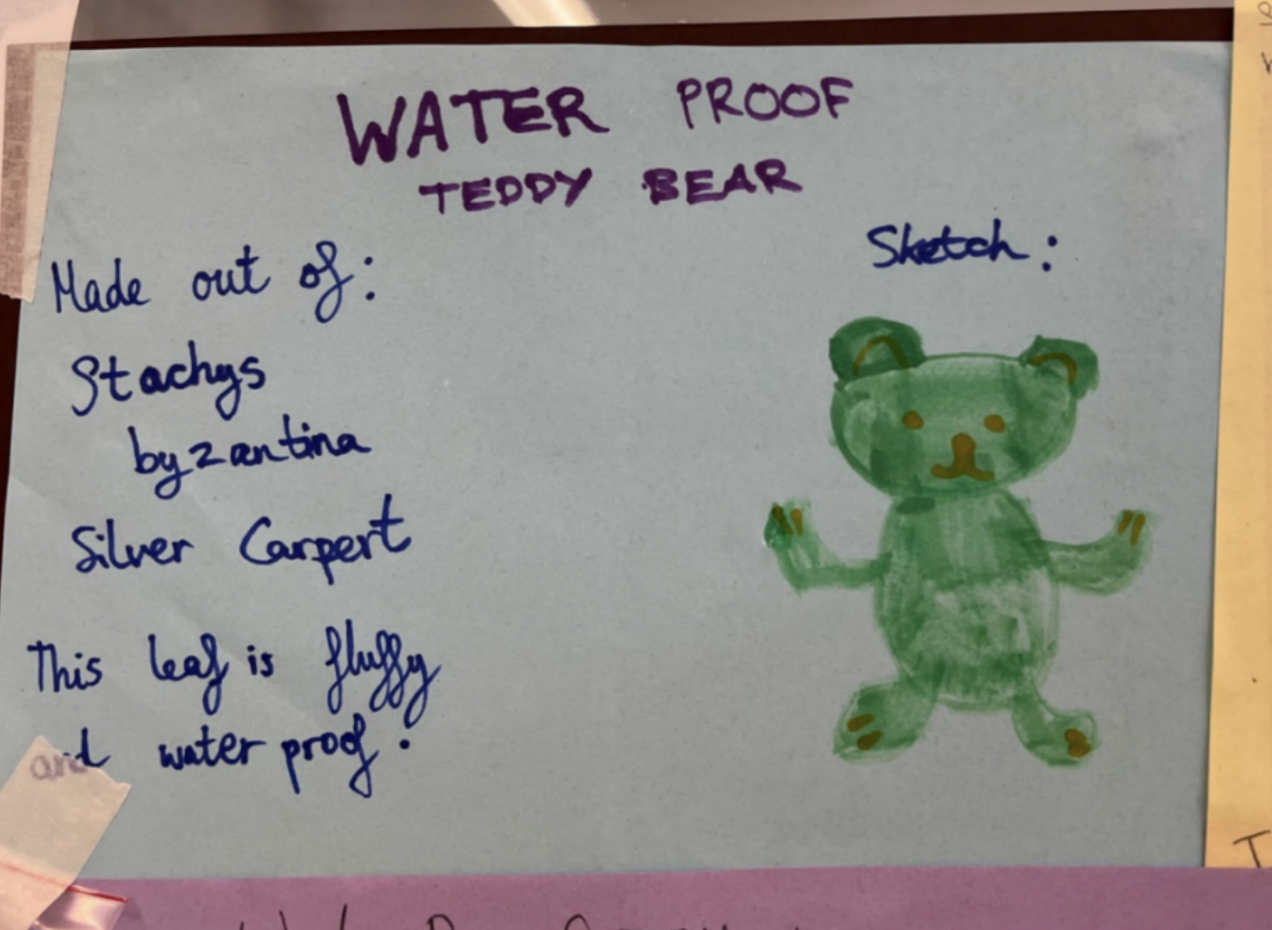 WATER PROOF
TEDDY BEAR
Made out of:
Stachys
byzantina
Silver Carpert
This leaf is fluffy
and water proof.
Sketch: